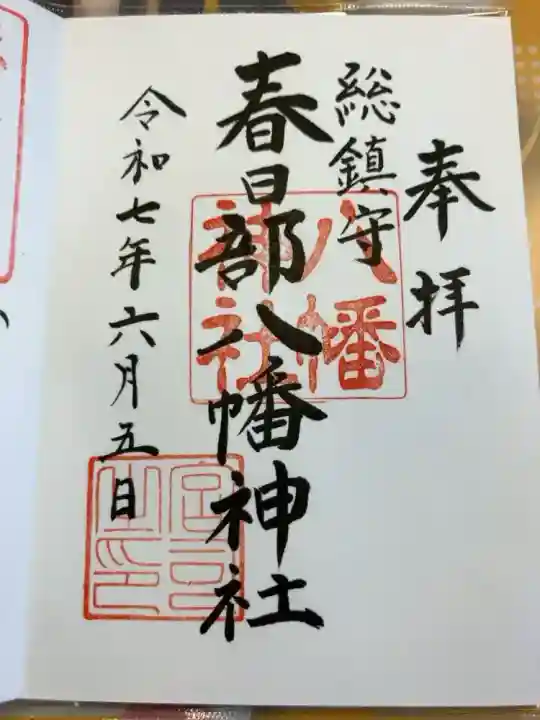 奉拝
総鎮守
春日部八幡神社
令和七年六月五日
八幡
神社
宮司
之印